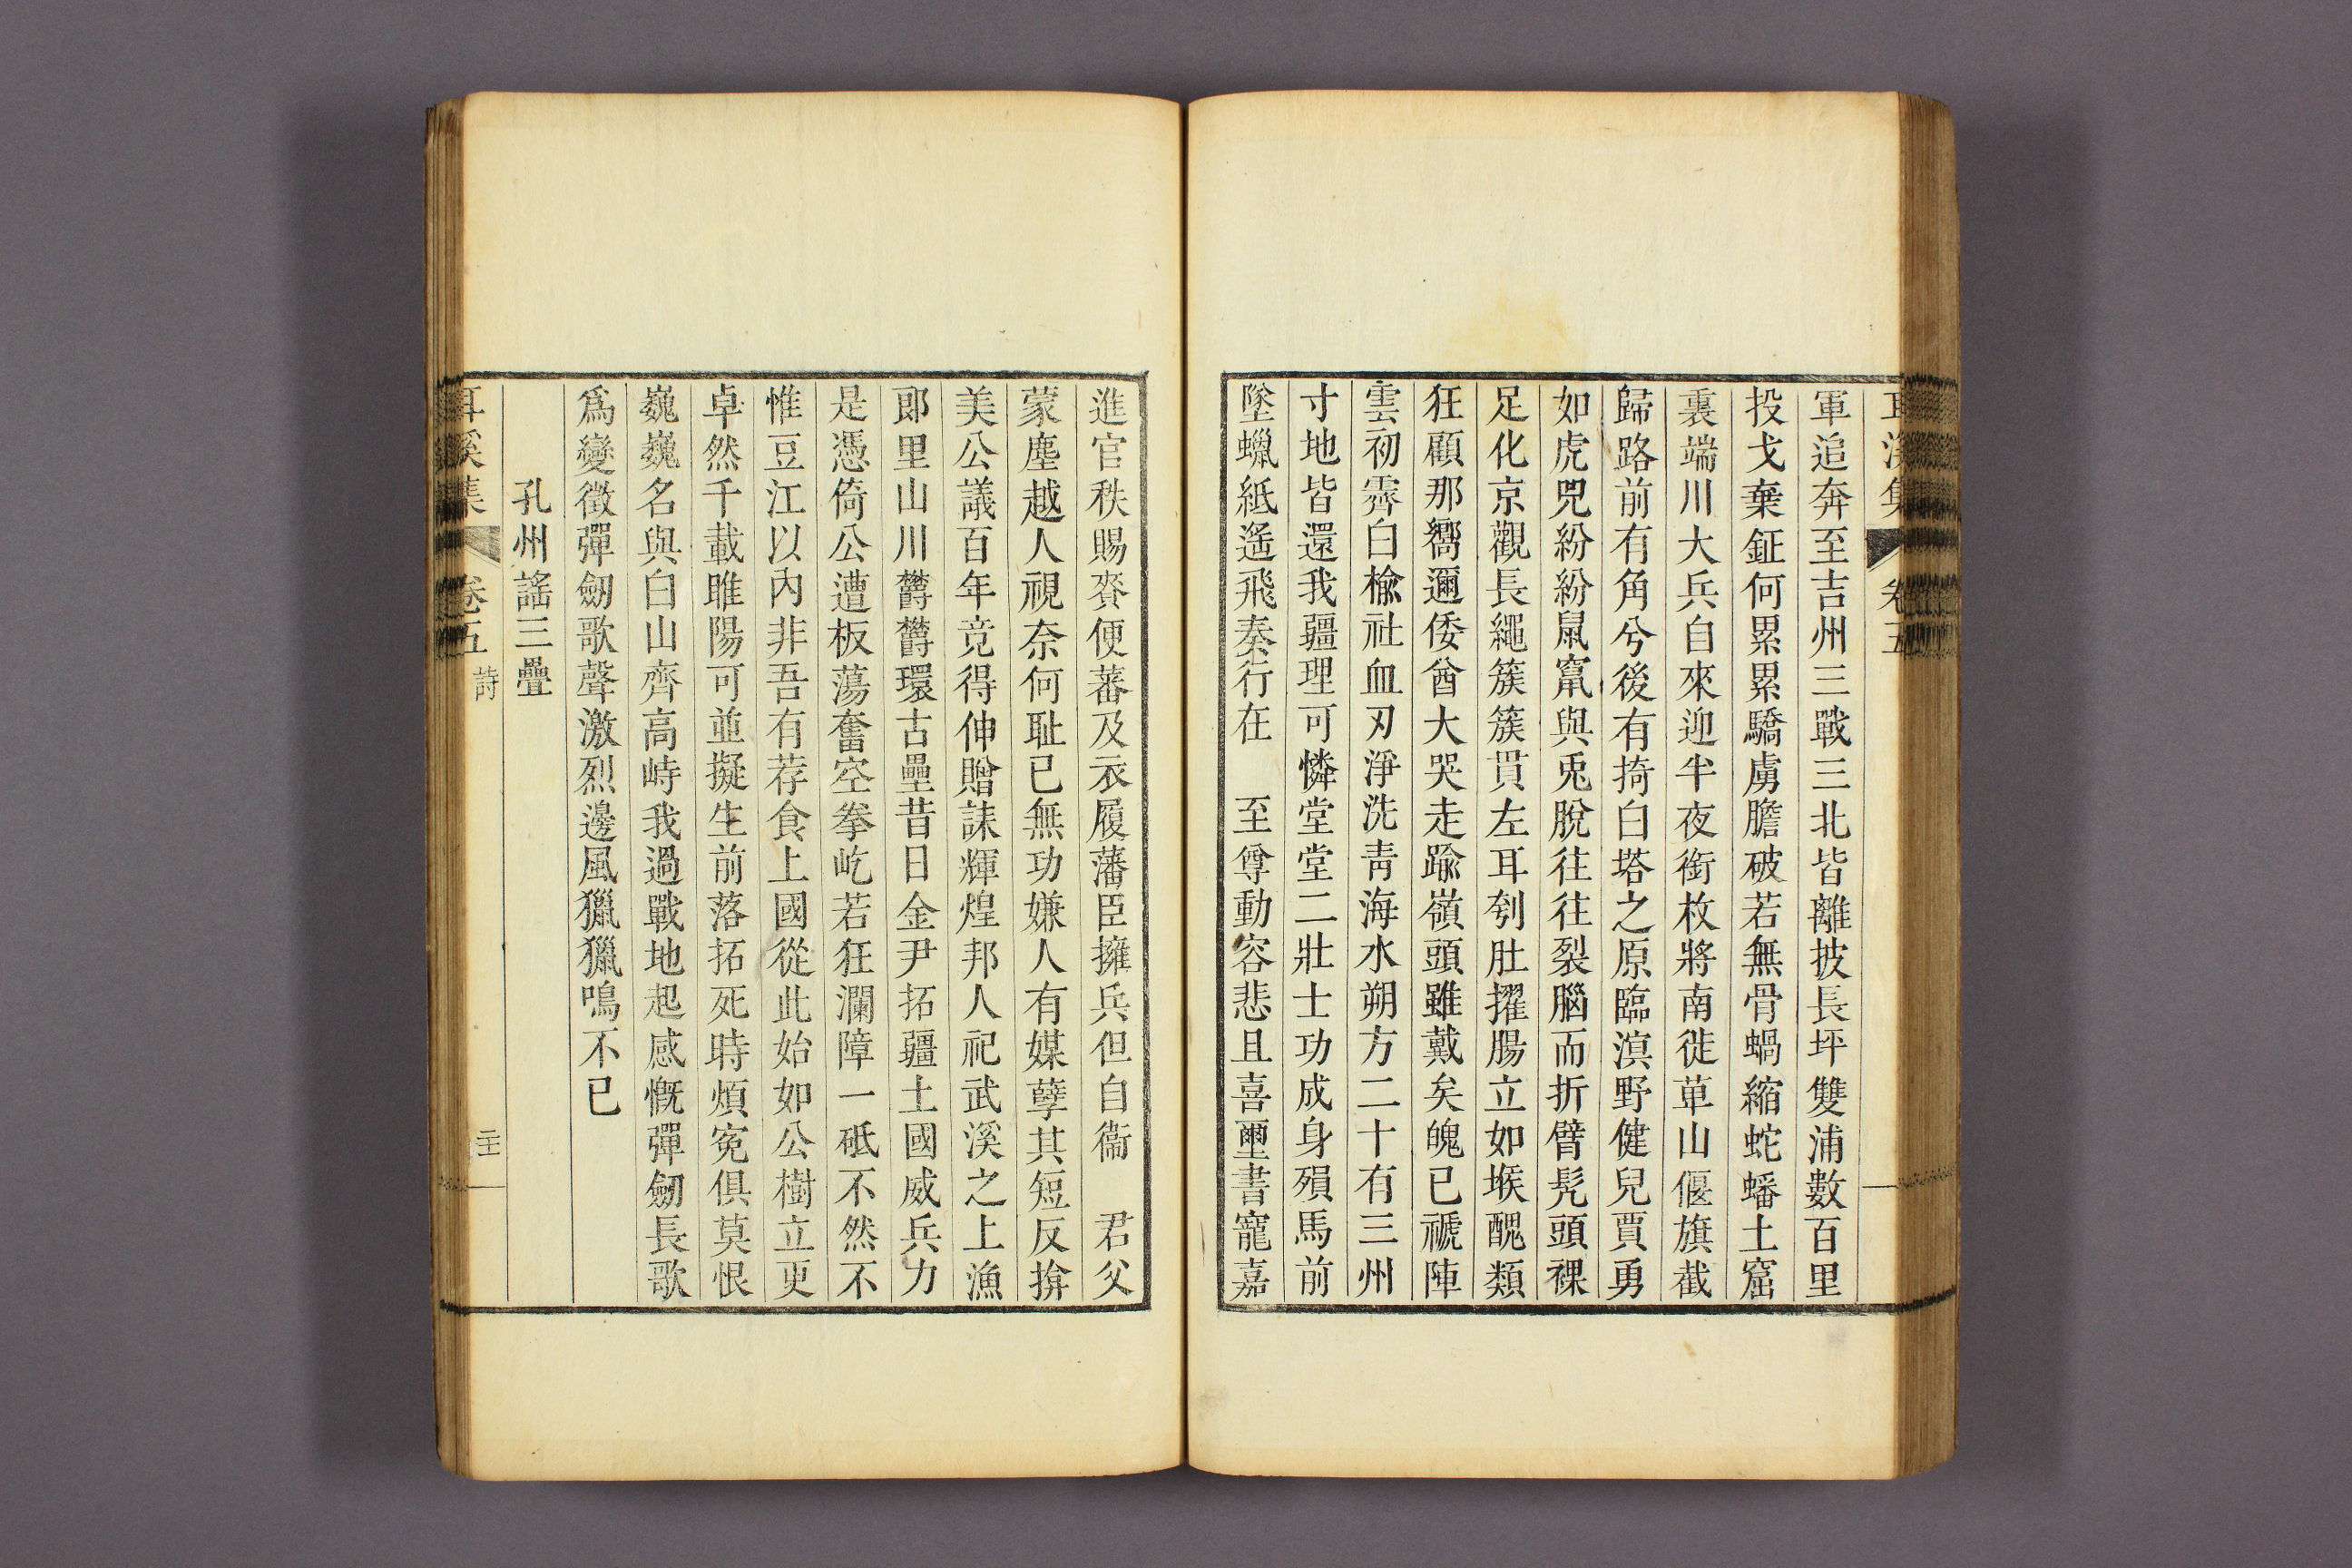 耳溪集　卷五
軍追奔至吉州三戰三北皆離披長坪雙浦數百里
投戈棄鉦何累累驕虜膽破若無骨蝸縮蛇蟠土窟
裏端川大兵自來迎半夜銜枚將南徙草山偃旗截
歸路前有角兮後有掎白塔之原臨溟野健兒賈勇
如虎兕紛紛鼠竄與兎脫往往裂腦而折臂髡頭裸
足化京觀長繩簇簇貫左耳刳肚擢腸立如堠醜類
狂顧那嚮邇倭酋大哭走踰嶺頭雖戴矣魄已褫陣
雲初霽白楡社血刃淨洗靑海水朔方二十有三州
寸地皆還我疆理可憐堂堂二壯士功成身殞馬前
墜蠟紙遙飛奏行在　至尊動容悲且喜璽書寵嘉
進官秩賜賚便蕃及衣履藩臣擁兵但自衞　君父
蒙塵越人視奈何耻已無功嫌人有媒孽其短反揜
美公議百年竞得伸贈誄輝煌邦人祀武溪之上漁
郞里山川欝欝環古壘昔日金尹拓疆土國威兵力
是憑倚公遭板蕩奮空拳屹若狂瀾障一砥不然不
惟豆江以內非吾有荐食上國從此始如公樹立更
卓然千載睢陽可並擬生前落拓死時煩寃俱莫恨
巍巍名與白山齊高峙我過戰地起感慨彈劒長歌
爲變徵彈劒歌聲激烈邊風獵獵鳴不已
孔州謠三疊
耳溪集　卷五　詩　二十